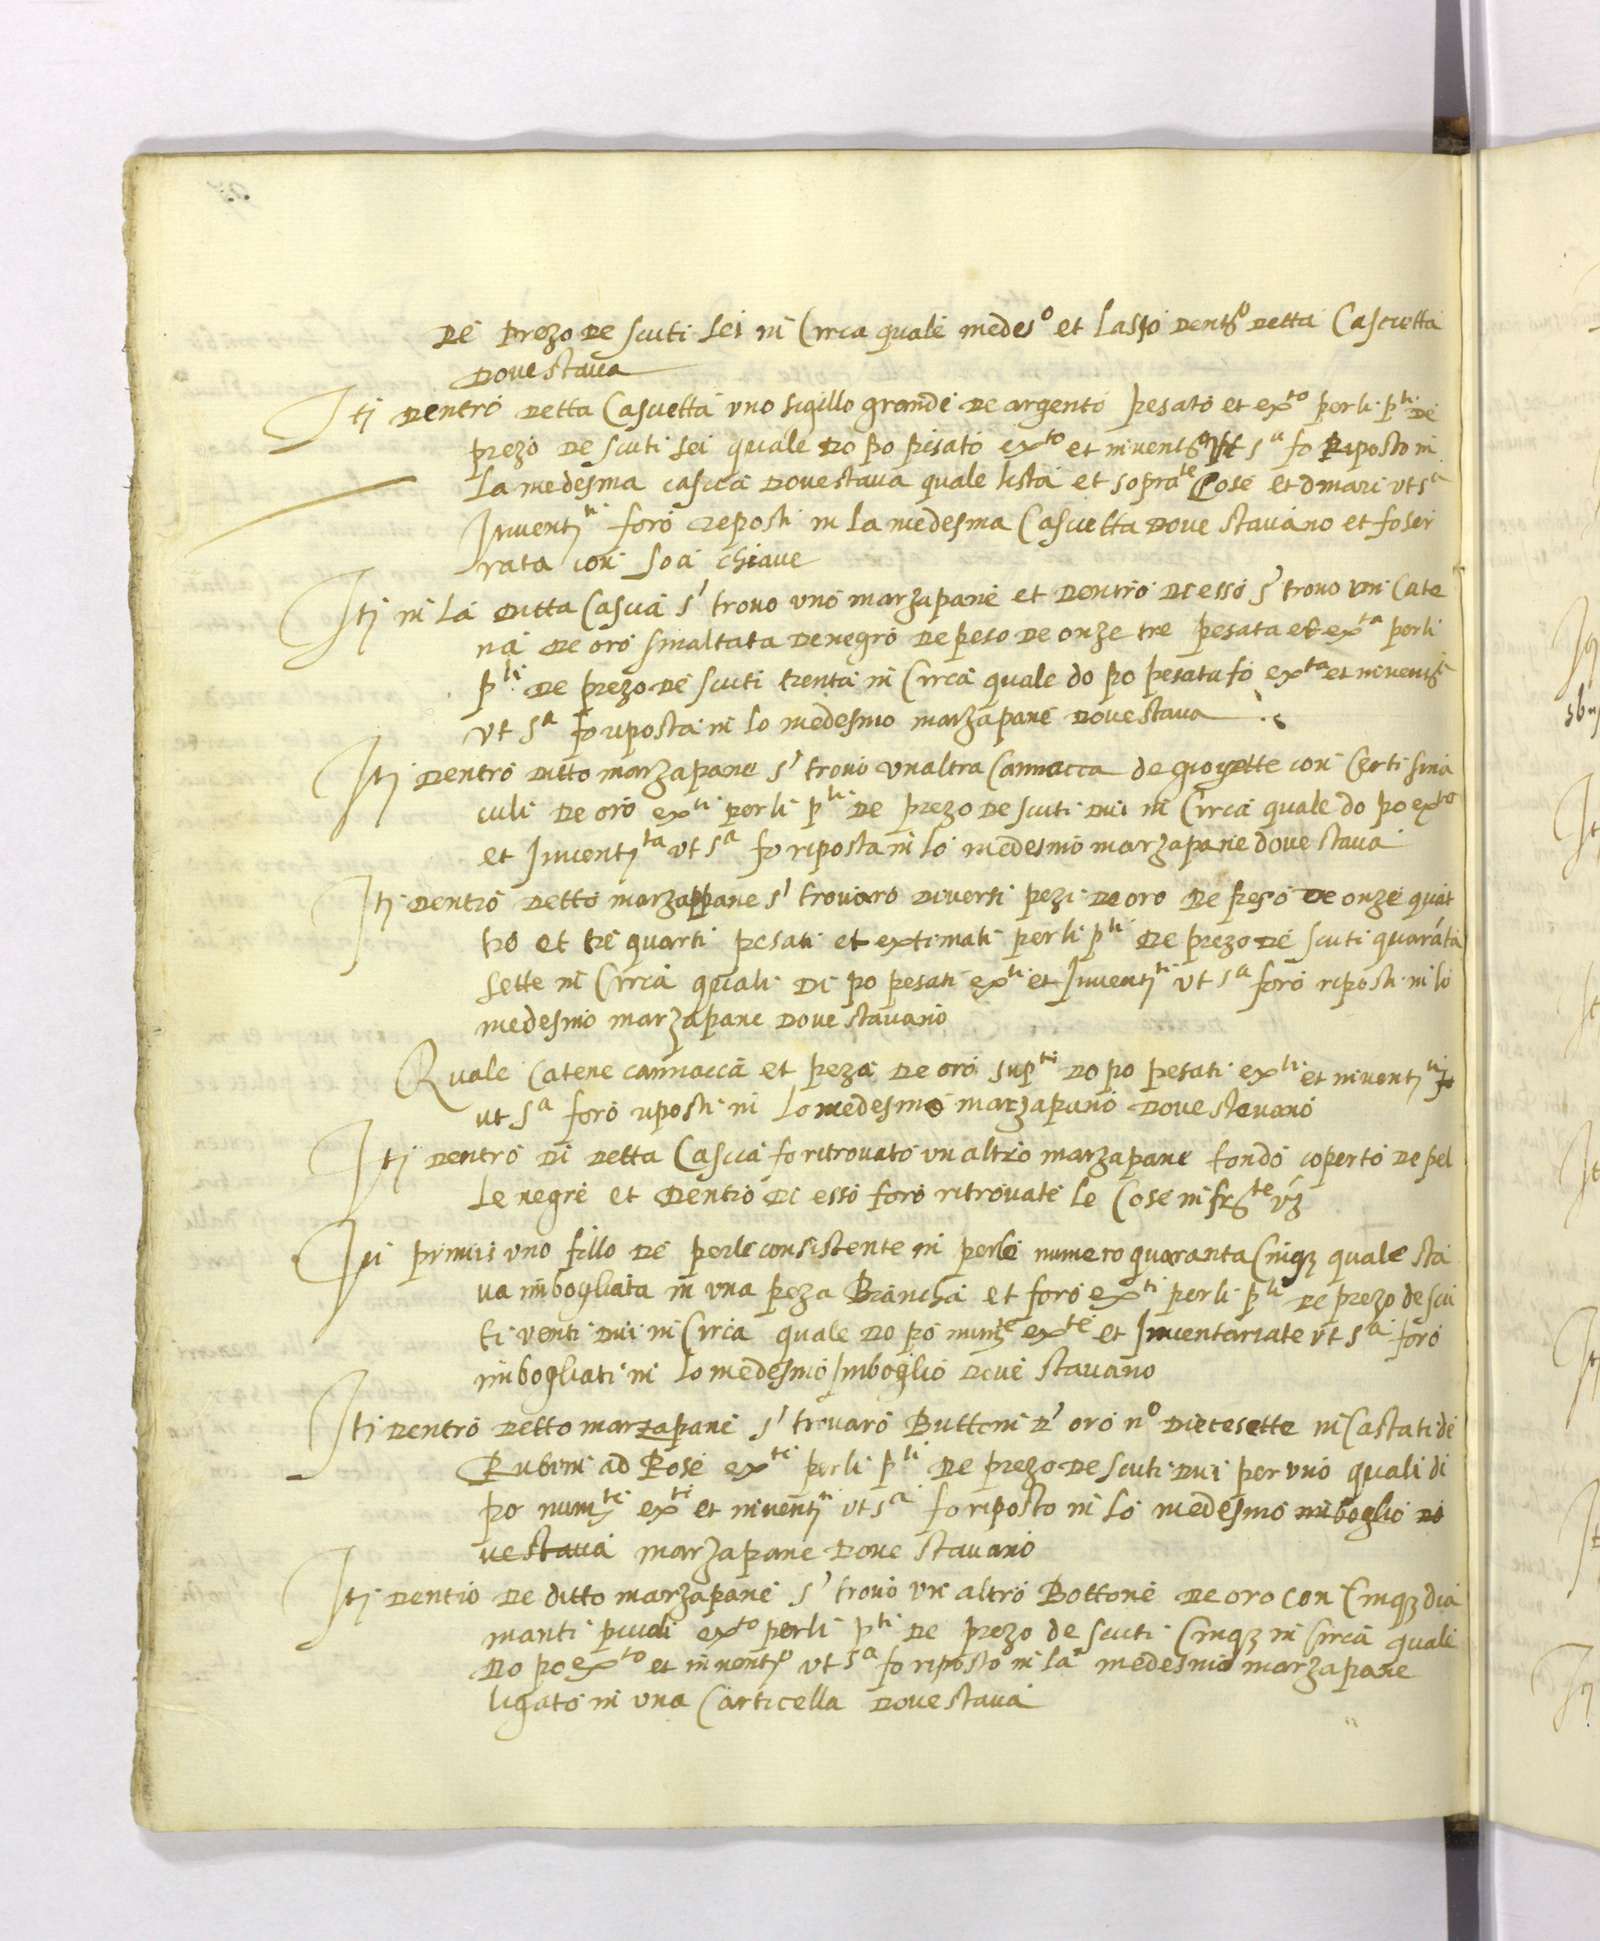 De prezo de scuti sei in Circa quale medes° et lasso dentro detta Cascietta
Dove stava
Itj dentro detta Cascietta uno sigillo grande de argento pesato et ex^to per li p^ti De
prezo de scuti sei quale do po pisato ex^to et invent° ut s^a fo Riposto in
La medesma cascia dove stava quale lista et sopra^te Cose et dinari ut s^a
Invent^ti foro reposti in la medesma Cascietta dove stavano et fo ser
rata con soa chiave
Itj in la ditta Cascia s' trovo uno marzapane et dentro de esso s' trovo un Cate
na de oro smaltata de negro de peso de onze tre pesata et ex^ta per li
p^ti de prezo de scuti trenta in Circa quale do po pesata fo ex^ta et invent^ta
ut s^a fo riposta in lo medesmo marzapane dove stava
Itj dentro ditto marzapane s' trovo un altra Cannacca de gioyette con Certi sma
culi de oro ex^ti per li p^ti de prezo de scuti dui in Circa quale do po ex^to
et Invent^ta ut s^a fo riposta in lo medesmo marzapane dove stava
Itj dentro detto marzappane s' trovaro diversi pezi de oro de peso de onze quat
tro et tre quarti pesati et extimati per li p^ti de prezo de scuti quaráta
sette in Circa quali di po pesati ex^ti et Invent^ti ut s^a foro riposti in lo
medesmo marzapane dove stavano
Quale Catene cannacca et peza de oro sup^ti do po pesati ex^ti et invent^ti fo
ut s^a foro riposti in lo medesmo marzapano dove stavano
Itj dentro di detta Cascia fo ritrovato un altro marzapane tondo coperto de pel
le negre et dentro di esso foro ritrovate le Cose infr^te vz
In primis uno fillo de perle consistente in perle numero quaranta Cinq3 quale sta
va imbogliata in una peza Biancha et foro ex^ti per li p^ti de prezo de scu
ti venti dui in Circa quale do po num^te ex^te et Inventariate ut s^a foro
imbogliati in lo medesmo Imboglio dove stavano
Itj dentro detto marzapane s' trovaro Buttoni d' oro n° diecesette in Castati de
Rubini ad Rose ex^ti per li p^ti de prezo de scuti dui per uno quali di
po num^ti ex^ti et invent^ti ut s^a fo riposto in lo medesmo imboglio do
ve stava marzapane dove stavano
Itj dentro de ditto marzapane s' trovo un altro Bottone de oro con Cinq3 dia
manti piccoli ex^to per li p^ti de prezo de scuti Cinq3 in Circa quale
do po ex^to et invent° ut s^a fo riposto in la medesmo marzapane
ligato in una Carticella dove stava